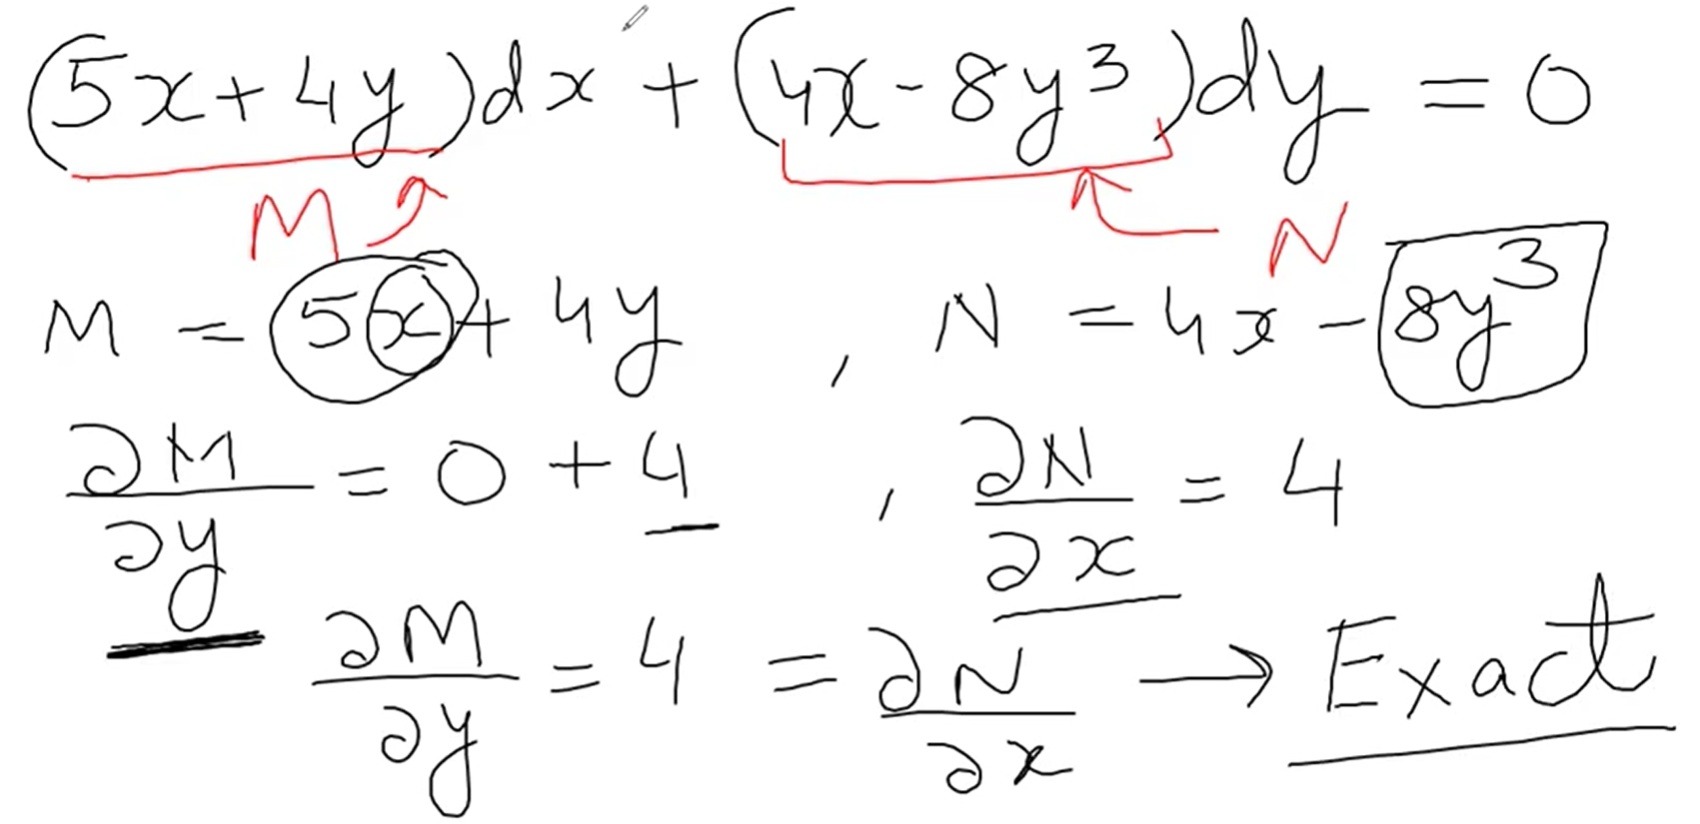 (5x+4y)dx + (4x-8y³)dy = 0
M N
M = 5x + 4y , N = 4x - 8y³
∂M/∂y = 0 + 4 , ∂N/∂x = 4
∂M/∂y = 4 = ∂N/∂x → Exact